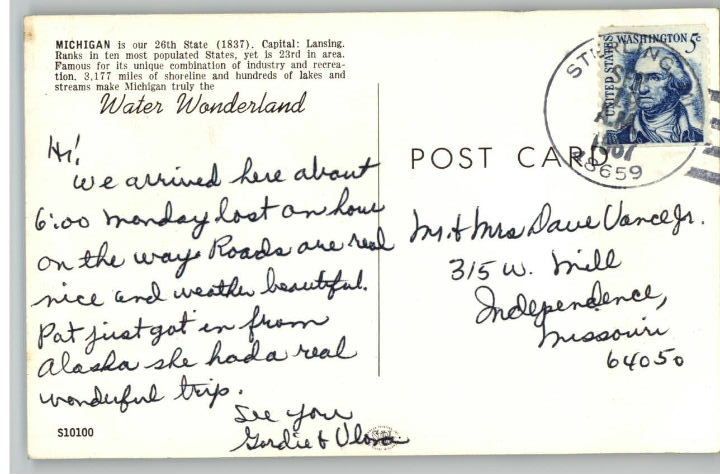 MICHIGAN is our 26th State (1837). Capital: Lansing.
Ranks in ten most populated States, yet is 23rd in area.
Famous for its unique combination of industry and recrea-
tion. 3,177 miles of shoreline and hundreds of lakes and
streams make Michigan truly the
Water Wonderland
Hi!
We arrived here about
6:00 Monday lost an hour
on the way. Roads are real
nice and weather beautiful.
Pat just got in from
Alaska she had a real
wonderful trip.
See you
Gordie & Vlora
S10100
POST CARD
UNITED STATES
WASHINGTON 5c
STERLING
1967
48659
Mr. & Mrs Dave Vance Jr.
315 W. Mill
Independence,
Missouri
64050